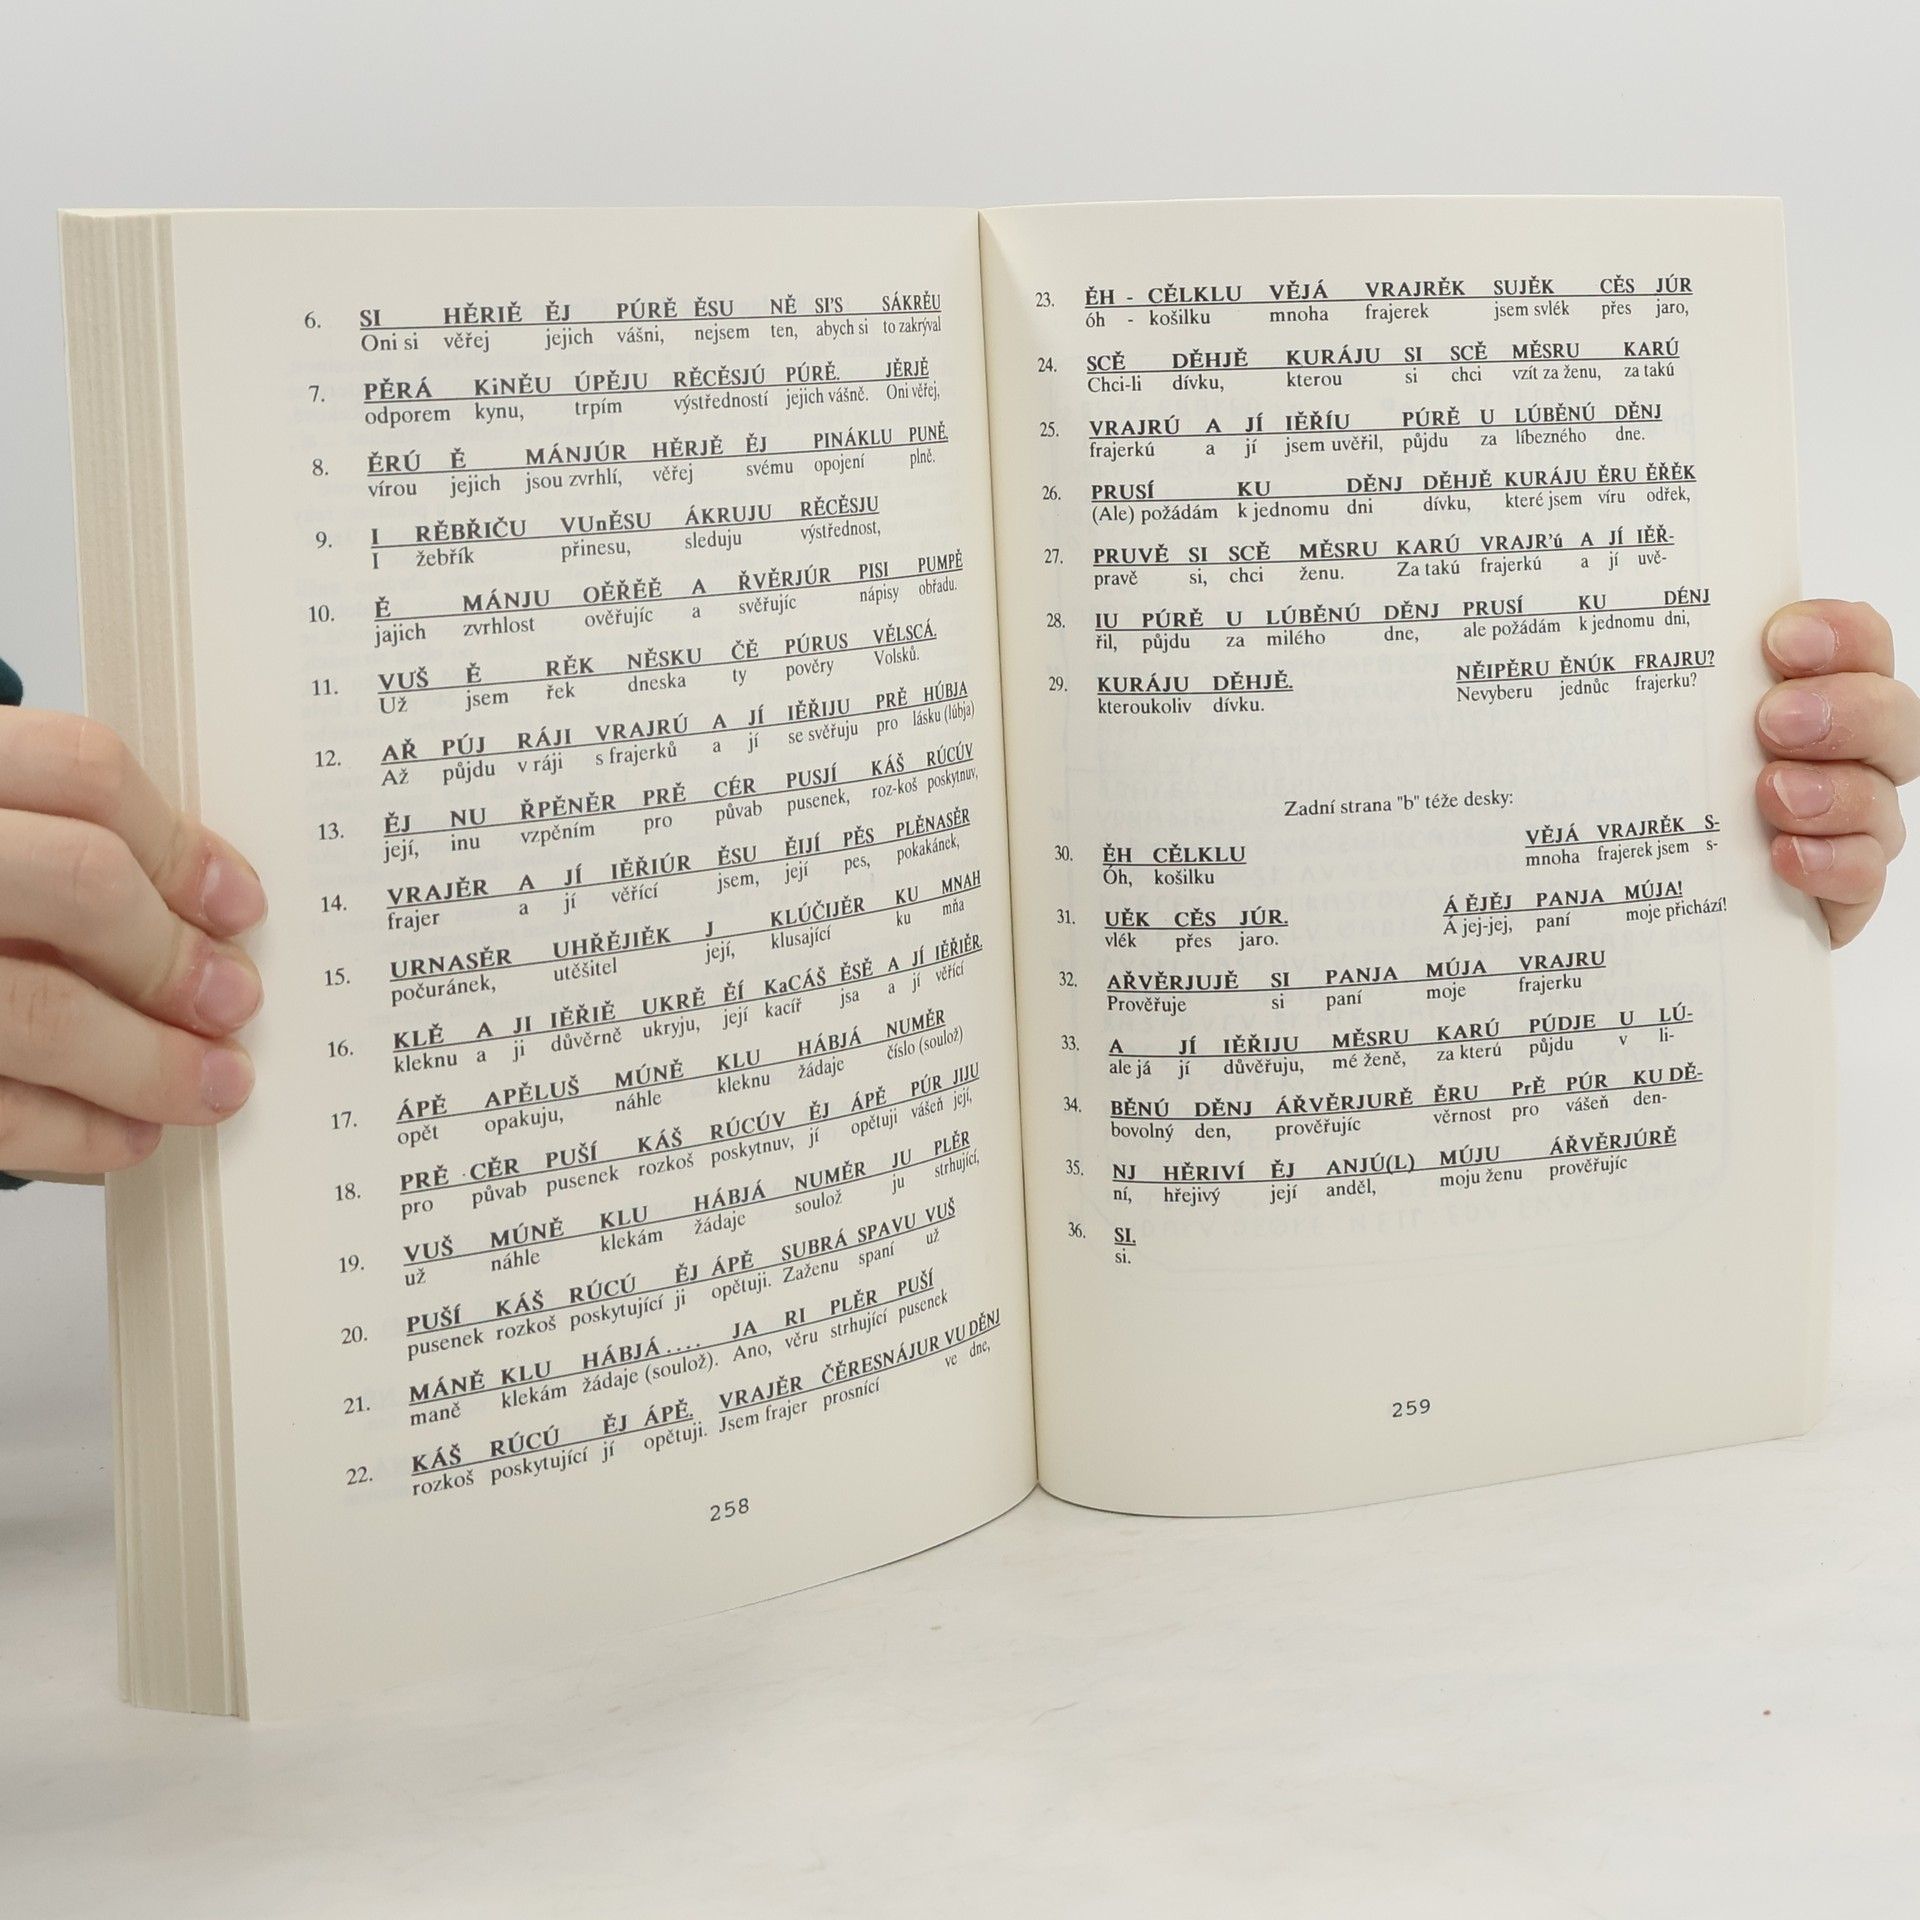 6. SI HĚRIĚ ĚJ PÚRĚ ĚSU NĚ SI'S SÁKRĚU
Oni si věřej jejich vášni, nejsem ten, abych si to zakrýval
7. PĚRÁ KiNĚU ÚPĚJU RĚCĚSJÚ PÚRĚ. JĚRJĚ
odporem kynu, trpím výstředností jejich vášně. Oni věřej,
8. ĚRÚ Ě MÁNJÚR HĚRJĚ ĚJ PINÁKLU PUNĚ.
vírou jejich jsou zvrhlí, věřej svému opojení plně.
9. I RĚBŘIČU VUnĚSU ÁKRUJU RĚCĚSJU
I žebřík přinesu, sleduju výstřednost,
10. Ě MÁNJU OĚŘĚĚ A ŘVĚRJÚR PISI PUMPĚ
jajich zvrhlost ověřujíc a svěřujíc nápisy obřadu.
11. VUŠ Ě RĚK NĚSKU ČĚ PÚRUS VĚLSCÁ.
Už jsem řek dneska ty pověry Volsků.
12. AŘ PÚJ RÁJI VRAJRÚ A JÍ IĚŘIJU PRĚ HÚBJA
Až půjdu v ráji s frajerků a jí se svěřuju pro lásku (lúbja)
13. ĚJ NU ŘPĚNĚR PRĚ CÉR PUSJÍ KÁŠ RÚCÚV
její, inu vzpěním pro půvab pusenek, roz-koš poskytnuv,
14. VRAJĚR A JÍ IĚŘIÚR ĚSU ĚIJÍ PĚS PLĚNASĚR
frajer a jí věřící jsem, její pes, pokakánek,
15. URNASĚR UHŘĚJIĚK J KLÚČIJĚR KU MNAH
počuránek, utěšitel její, klusající ku mňa
16. KLĚ A JI IĚŘIĚ UKRĚ ĚÍ KaCÁŠ ĚSĚ A JÍ IĚŘIĚR.
kleknu a ji důvěrně ukryju, její kacíř jsa a jí věřící
17. ÁPĚ APĚLUŠ MÚNĚ KLU HÁBJÁ NUMĚR
opět opakuju, náhle kleknu žádaje číslo (soulož)
18. PRĚ CĚR PUŠÍ KÁŠ RÚCÚV ĚJ ÁPĚ PÚR JIJU
pro půvab pusenek rozkoš poskytnuv, jí opětuji vášeň její,
19. VUŠ MÚNĚ KLU HÁBJÁ NUMĚR JU PLĚR
už náhle klekám žádaje soulož ju strhující,
20. PUŠÍ KÁŠ RÚCÚ ĚJ ÁPĚ SUBRÁ SPAVU VUŠ
pusenek rozkoš poskytující ji opětuji. Zaženu spaní už
21. MÁNĚ KLU HÁBJÁ.... JA RI PLĚR PUŠÍ
maně klekám žádaje (soulož). Ano, věru strhující pusenek
22. KÁŠ RÚCÚ ĚJ ÁPĚ. VRAJĚR ČĚRESNÁJUR VU DĚNJ
rozkoš poskytující jí opětuji. Jsem frajer prosnící ve dne,
258
23. ĚH - CĚLKLU VĚJÁ VRAJRĚK SUJĚK CĚS JÚR
óh - košilku mnoha frajerek jsem svlék přes jaro,
24. SCĚ DĚHJĚ KURÁJU SI SCĚ MĚSRU KARÚ
Chci-li dívku, kterou si chci vzít za ženu, za takú
25. VRAJRÚ A JÍ IĚŘÍU PÚRĚ U LÚBĚNÚ DĚNJ
frajerkú a jí jsem uvěřil, půjdu za líbezného dne.
26. PRUSÍ KU DĚNJ DĚHJĚ KURÁJU ĚRU ĚŘĚK
(Ale) požádám k jednomu dni dívku, které jsem víru odřek,
27. PRUVĚ SI SCĚ MĚSRU KARÚ VRAJR'ú A JÍ IĚŘ-
pravě si, chci ženu. Za takú frajerkú a jí uvě-
28. IU PÚRĚ U LÚBĚNÚ DĚNJ PRUSÍ KU DÉNJ
řil, půjdu za milého dne, ale požádám k jednomu dni,
29. KURÁJU DĚHJĚ. NĚIPĚRU ĚNÚK FRAJRU?
kteroukoliv dívku. Nevyberu jednůc frajerku?
Zadní strana "b" téže desky:
30. ĚH CĚLKLU VĚJÁ VRAJRĚK S-
Óh, košilku mnoha frajerek jsem s-
31. UĚK CĚS JÚR. Á ĚJĚJ PANJA MÚJA!
vlék přes jaro. Á jej-jej, paní moje přichází!
32. AŘVĚRJUJĚ SI PANJA MÚJA VRAJRU
Prověřuje si paní moje frajerku
33. A JÍ IĚŘIJU MĚSRU KARÚ PÚDJE U LÚ-
ale já jí důvěřuju, mé ženě, za kterú půjdu v li-
34. BĚNÚ DĚNJ ÁŘVĚRJURĚ ĚRU PrĚ PÚR KU DĚ-
bovolný den, prověřujíc věrnost pro vášeň den-
35. NJ HĚRIVÍ ĚJ ANJÚ(L) MÚJU ÁŘVĚRJÚRĚ
ní, hřejivý její anděl, moju ženu prověřujíc
36. SI.
si.
259